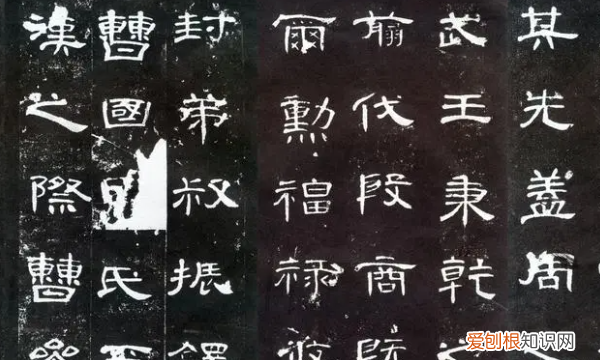 其先蓋周
武王秉乾之
翦伐殷商既
爾勳福祿攸
封弟叔振鐸
曹國因氏焉
漢之際曹參
爱刨根知识网